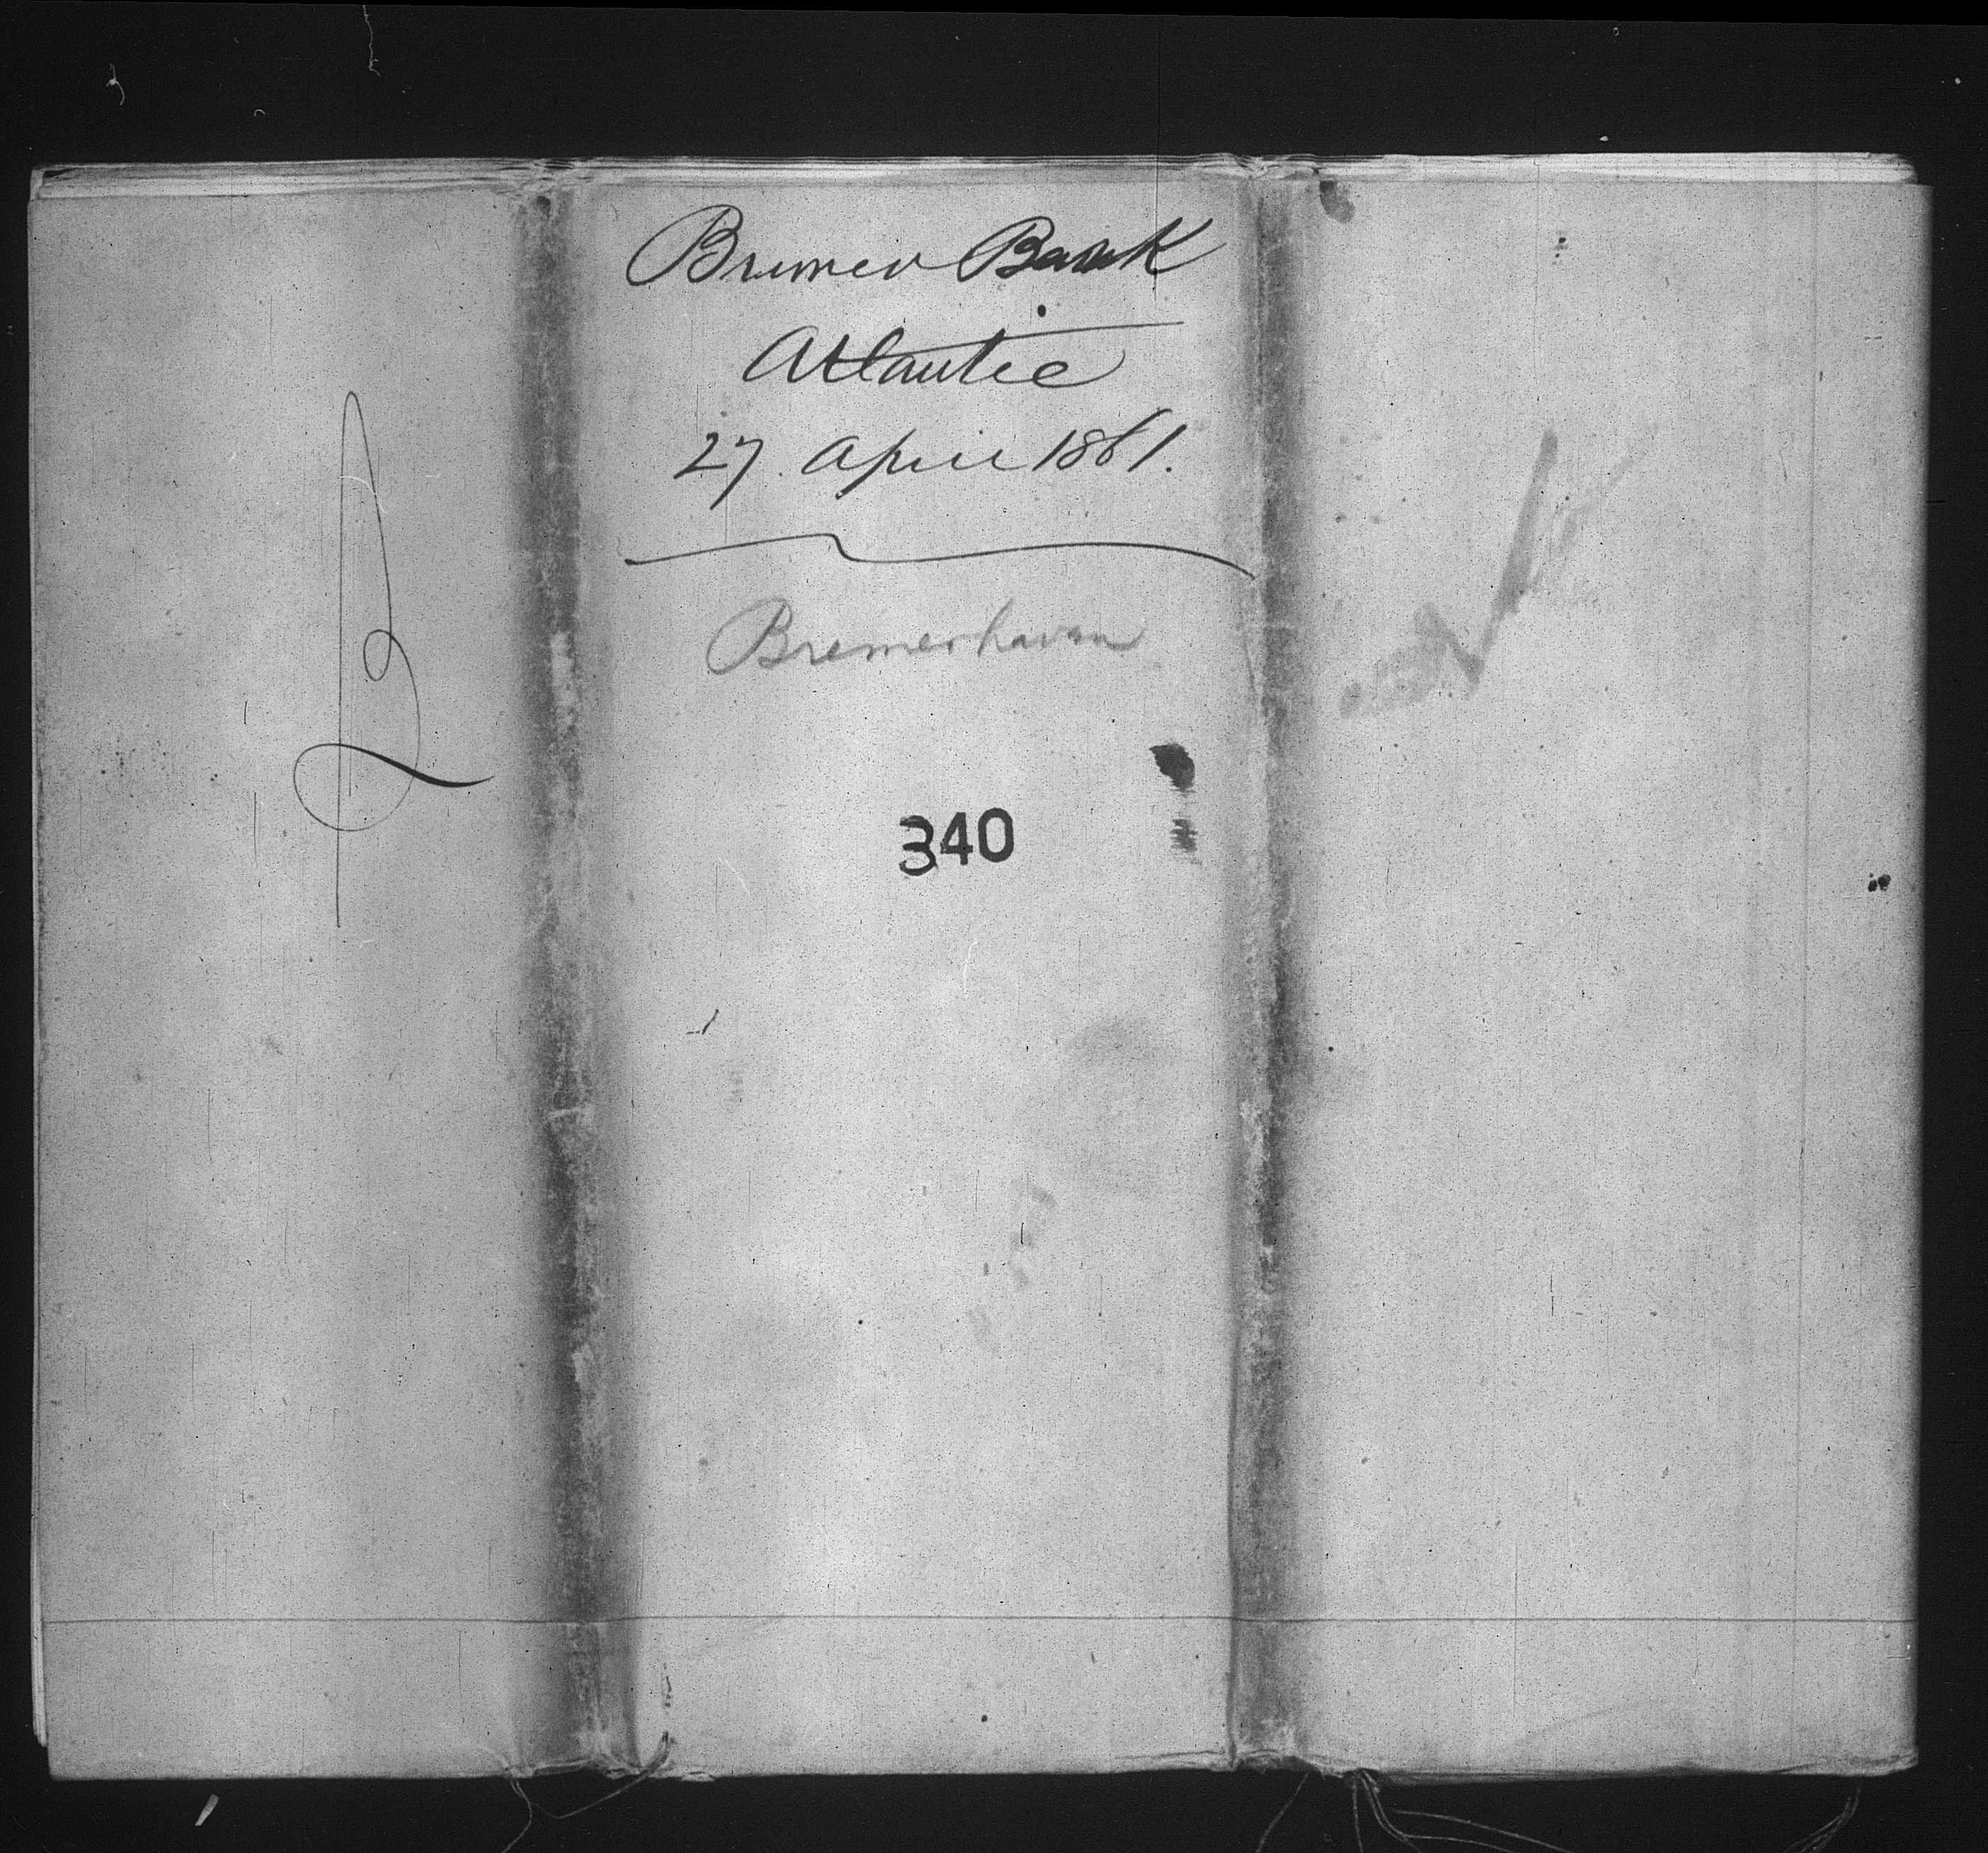 Bremer Bark
Atlantic
27. April 1861.
Bremerhaven
340